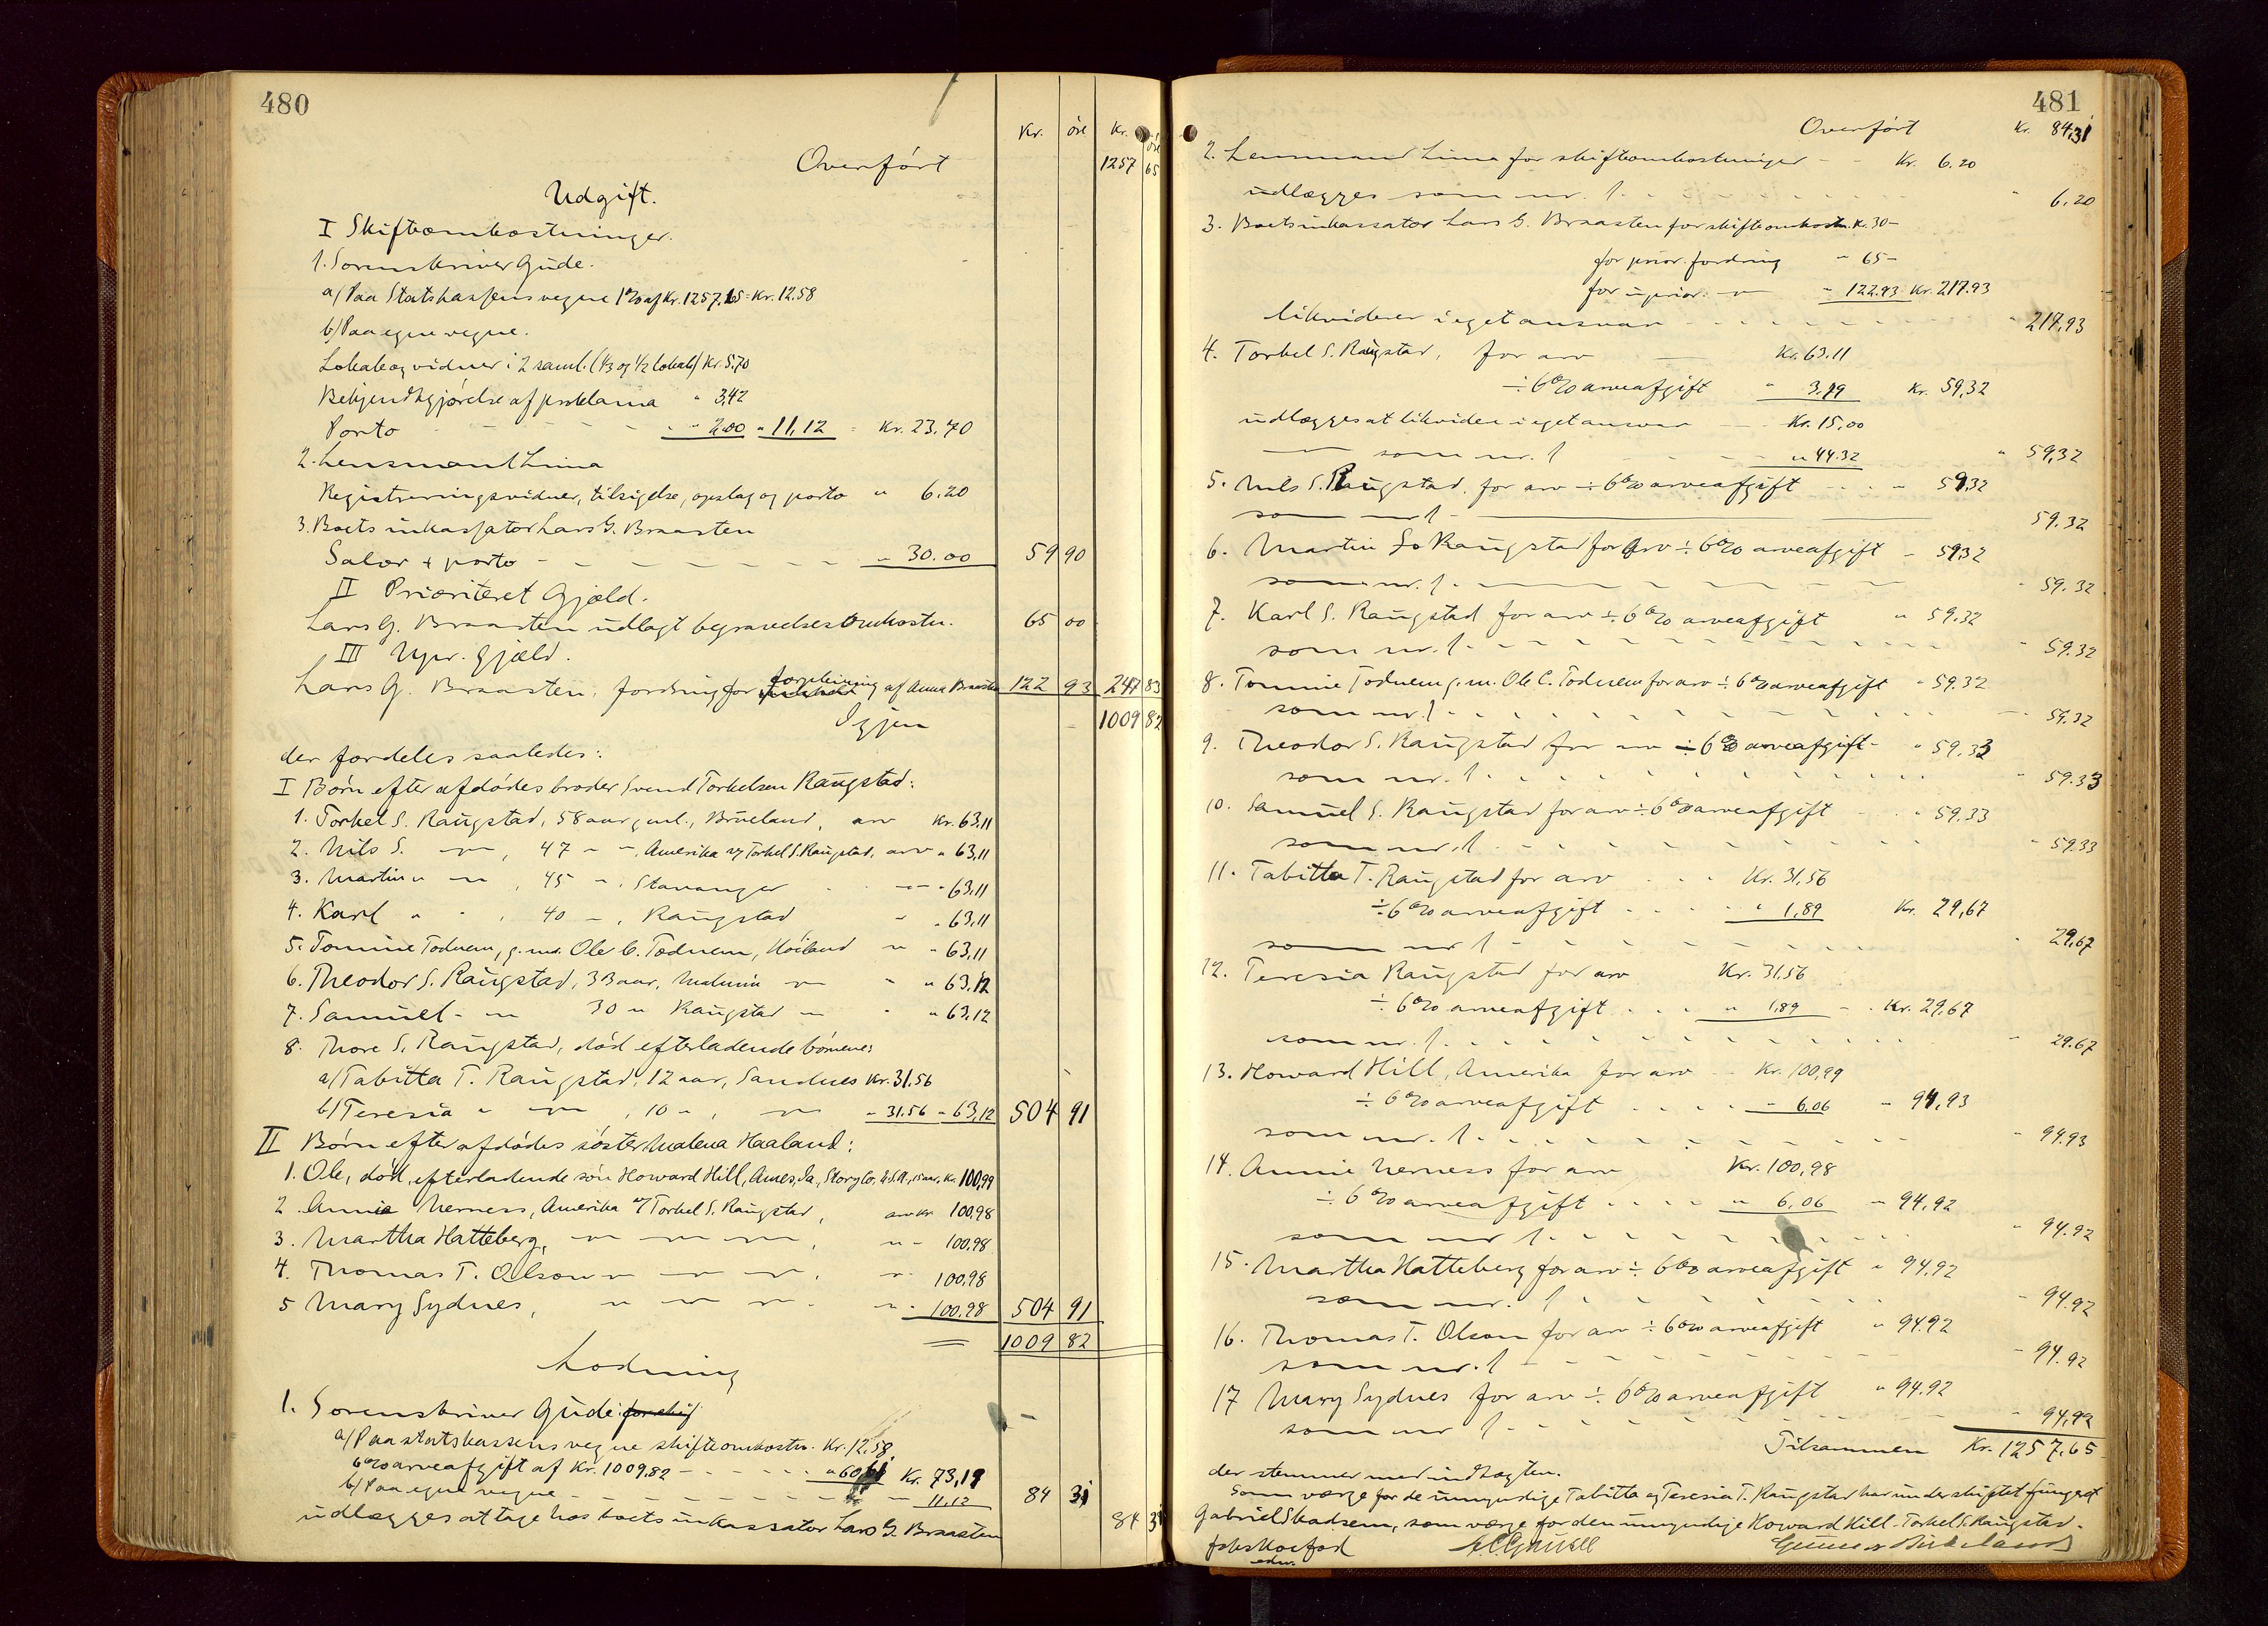 480
Kr. øre Kr. øre
Overført 1257 65
Udgift.
I Skifteomkostninger.
1. Sorenskriver Gude.
a/ Paa Statskassens vegne 1% af Kr. 1257,65 = Kr. 12.58
b/ Paa egne vegne.
Lokale og vidner i 2 saml. (1/3 og 1/2 lokale) Kr. 5.70
Bekjendtgjørelse af proklama " 3,42
Porto - - - - - " 2.00 " 11,12 = Kr. 23,70
2. Lensmand Lima
Registreringsvidner, tilsigelse, opslag og porto " 6.20
3. Boets inkassator Lars G. Braasten
Salær + porto - - - - - - " 30.00 59 90
II Prioriteret Gjæld.
Lars G. Braasten udlagt begravelsesomkostn. 65 00
III Upr. gjæld.
Lars G. Braasten, fordring for forpleining af Anna Braasten 122 93 247 83
Igjen 1009 82
der fordeles saaledes:
I Børn efter afdødes broder Svend Torkelsen Raugstad:
1. Torkel S. Raugstad, 58 aar, gml., Brueland, arv Kr. 63,11
2. Nils S. — " —, 47 " — ", Amerika v/ Torkel S. Raugstad, arv " 63,11
3. Martin " — " —, 45 — ", Stavanger - " - " 63,11
4. Karl " - , 40 — ", Raugstad " " 63,11
5. Tomine Todnem, g. m. Ole C. Todnem, Høiland " " 63,11
6. Theodor S. Raugstad, 33 aar, — " — " " 63,12
7. Samuel - " — 30 " Raugstad — " - " 63,12
8. Thore S. Raugstad, død efterladende børnene:
a/ Tabitta T. Raugstad, 12 aar, Sandnes Kr. 31.56
b/ Teresia " — " —, 10 " , — " — " 31.56 " 63,12 504 91
II Børn efter afdødes søster Malena Haaland:
1. Ole, død, efterladende søn Howard Hill, Ames, Ia., Story Co, U.S.A., 15 aar, Kr. 100,99
2. Annie Nerness, Amerika v/ Torkel S. Raugstad, arv kr 100,98
3. Martha Hatteberg, — " — " — " —, " - 100.98
4. Thomas T. Olson — " — " — " —, " 100,98
5 Mary Sydnes, — " — " — " — - " - 100.98 504 91
1009 82
Lodning
1. Sorenskriver Gude
a/ Paa statskassens vegne skifteomkostn. Kr. 12,58
6% arveafgift af Kr. 1009.82 - - - - - " 60,61 Kr. 73,19
b/ Paa egne vegne - - - - - - - - - 11.12 84 31
udlægges at tage hos boets inkassator Lars G. Braasten 84 31
481
Overført Kr. 84,31
2. Lensmand Lima for skifteomkostninger - - Kr. 6.20
udlægges som nr. 1 - - - - - - - - " 6.20
3. Boets inkassator Lars G. Braasten for skifteomkostn. Kr. 30 -
for prior. fordring " 65 -
for uprior. — " — - 122.93 Kr. 217.93
likviderer i eget ansvar - - - - - - - " 217,93
4. Torkel S. Raugstad, for arv — Kr. 63.11
÷ 6% arveafgift " 3.79 Kr. 59,32
udlægges at likvidere i eget ansvar - Kr. 15,00
— som nr. 1 - - - " 44.32 " 59,32
5. Nils S. Raugstad, for arv ÷ 6% arveafgift - - - " 59.32
som nr 1 - 59.32
6. Martin S. Raugstad for arv ÷ 6% arveafgift - 59.32
som nr. 1 - - - - - - - " 59.32
7. Karl S. Raugstad for arv ÷ 6% arveafgift " 59.32
som nr. 1 - - - - - - - " 59.32
8. Tomine Todnem g. m. Ole C. Todnem for arv ÷ 6% arveafgift " 59.32
som nr. 1 - - - - - - - 59.32
9. Theodor S. Raugstad for arv ÷ 6% arveafgift - " 59.33
som nr. 1 - - - - - - - " 59.33
10. Samuel S. Raugstad for arv ÷ 6% arveafgift - - " 59.33
som nr. 1 - - - - - - - " 59.33
11. Tabitta T. Raugstad for arv - - - Kr. 31,56
÷ 6% arveafgift - - - - " 1,89 Kr. 29,67
som nr 1 - - - - - - - " 29,67
12. Teresia Raugstad for arv Kr. 31.56
÷ 6% arveafgift - - - " 1,89 - - Kr. 29,67
som nr. 1 - - - - - - - " 29.67
13. Howard Hill, Amerika for arv - Kr. 100,99
÷ 6% arveafgift - - - - " 6,06 " 94,93
som nr. 1 - - - - - - - " 94.93
14. Annie Nerness for arv Kr. 100,98
÷ 6% arveafgift - - - - " 6,06 " 94,92
som nr 1 - - - - - - - " 94.92
15. Martha Hatteberg for arv ÷ 6% arveafgift " 94,92
som nr. 1 - - - - - - - " 94.92
16. Thomas T. Olson for arv ÷ 6% arveafgift " 94.92
som nr. 1 - - - - - - - " 94.92
17 Mary Sydnes for arv ÷ 6% arveafgift " 94.92
som nr 1 - - - - - - - " 94,92
Tilsammen Kr. 1257,65
der stemmer med indtægten.
Som værge for de umyndige Tabitta og Teresia T. Raugstad har under skiftet fungeret
Gabriel Skadsem, som værge for den umyndige Howard Hill - Torkel S. Raugstad.
edv.
Gunnar Birkeland